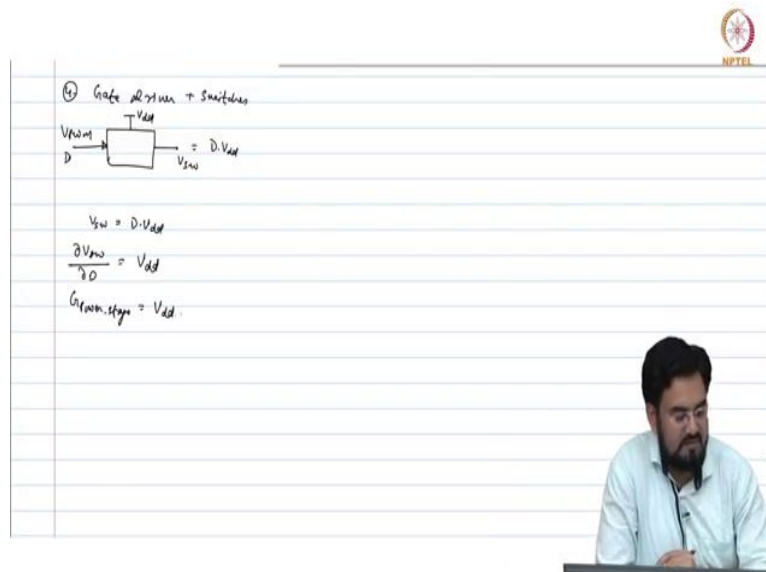 NPTEL
4. Gate driver + Switches
Vdd
VPWM
D
Vsw = D.Vdd
Vsw = D.Vdd
∂Vsw/∂D = Vdd
Gpwm.stage = Vdd.